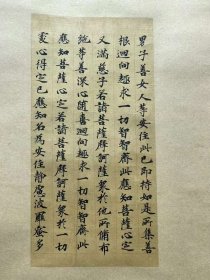 男子善女人等安住此已即持如是所集善
根迴向趣求一切智智齊此應知菩薩心定
又滿慈子若諸菩薩摩訶薩衆於他所備布
施等善深心隨喜迴向趣求一切智智齊此
應知菩薩心定若諸菩薩摩訶薩衆於一切
定心得定已應知名為安住靜慮波羅蜜多